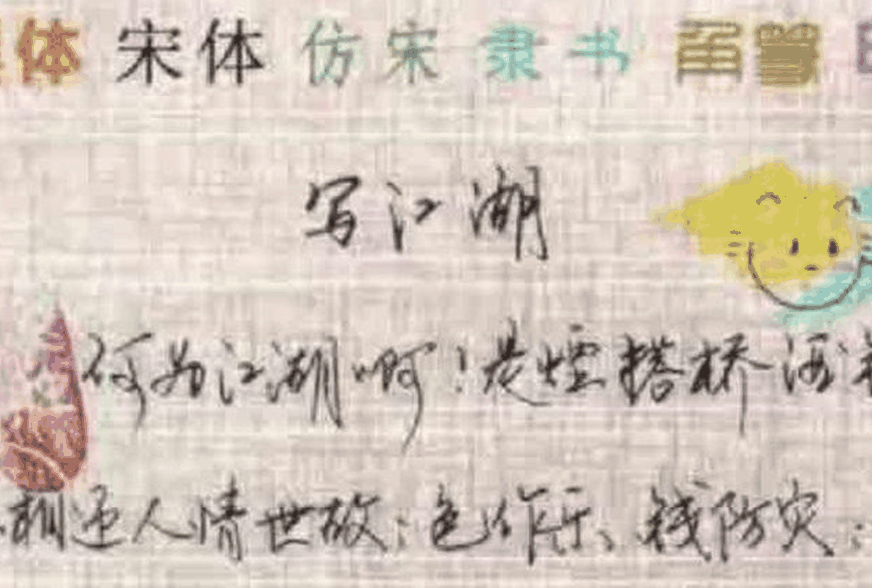 体 宋体 仿宋 隶书 篆
写江湖
何为江湖啊！是烟搭桥 酒
相逢人情世故；色作乐、钱防灾；